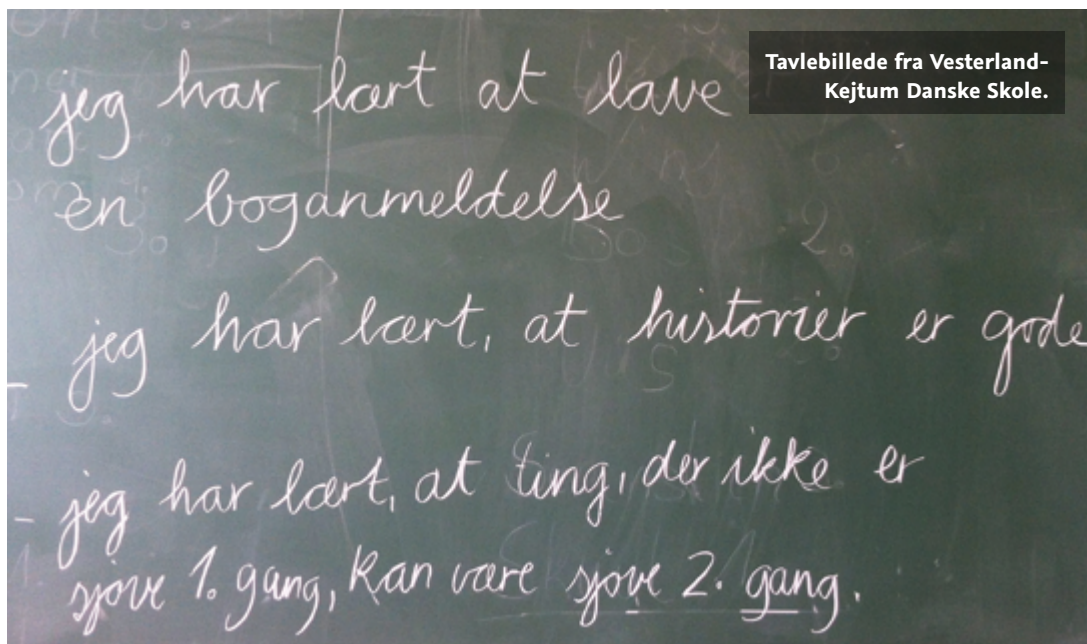 Tavlebillede fra Vesterland-
Kejtum Danske Skole.
jeg har lært at lave
en boganmeldelse
- jeg har lært, at historier er gode
- jeg har lært, at ting, der ikke er
sjove 1. gang, kan være sjove 2. gang.